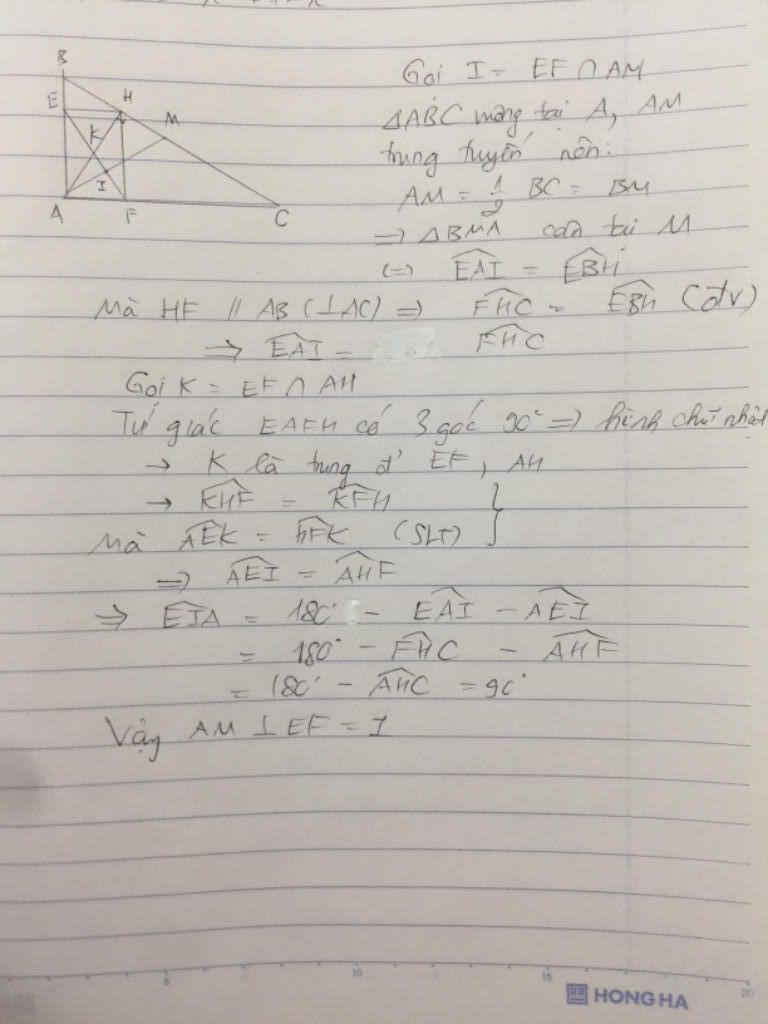 B
E
H
K
M
I
A
F
C
Gọi I = EF ∩ AM
△ABC vuông tại A, AM
trung tuyến nên:
AM = 1/2 BC = BM
=> △BMA cân tại M
(=) EAI = EBH
Mà HF // AB (⊥AC) => FHC = EBH (đv)
=> EAI = FHC
Gọi K = EF ∩ AH
Tứ giác EAFH có 3 góc 90° => hình chữ nhật
→ K là trung đ' EF, AH
→ KHF = KFH
Mà AEK = HFK (SLT)
=> AEI = AHF
=> EIA = 180° - EAI - AEI
= 180° - FHC - AHF
= 180° - AHC = 90°
Vậy AM ⊥ EF = I
5 10 15 20
HONG HA